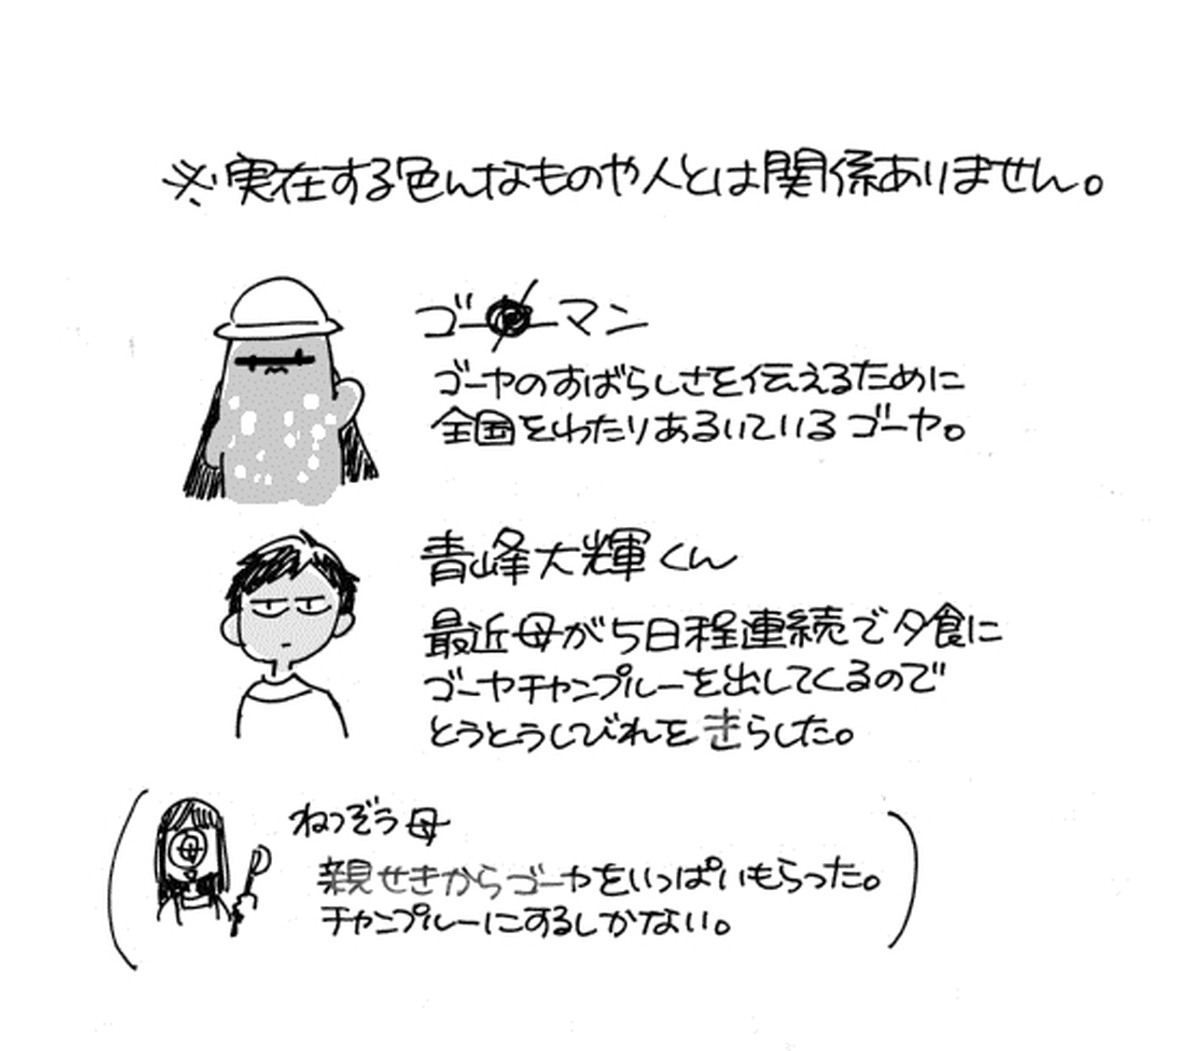 ※実在する色んなものや人とは関係ありません。
ゴーーマン
ゴーヤのすばらしさを伝えるために
全国をわたりあるいているゴーヤ。
青峰大輝くん
最近母が5日程連続で夕食に
ゴーヤチャンプルーを出してくるので
とうとうしびれをきらした。
ねつぞう母
母
親せきからゴーヤをいっぱいもらった。
チャンプルーにするしかない。